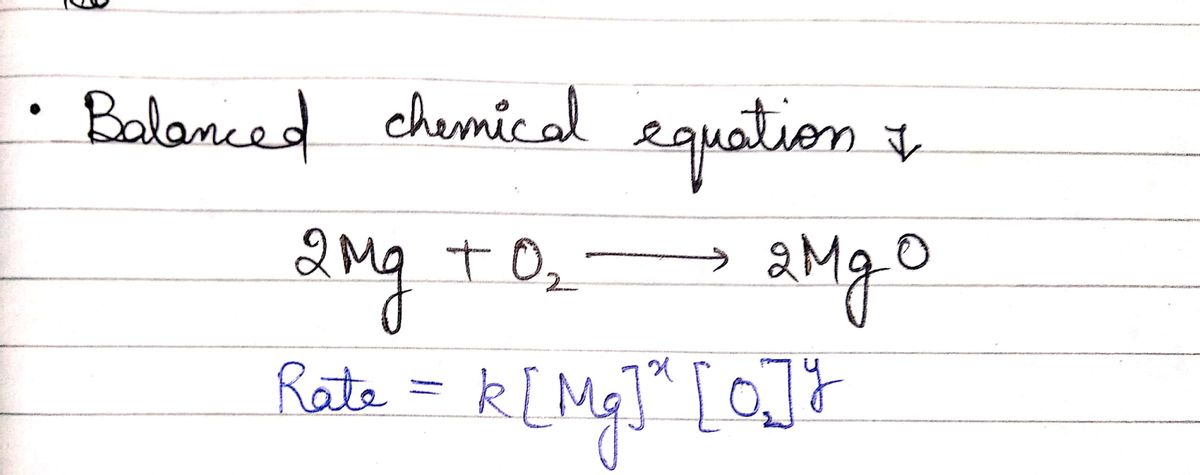 • Balanced chemical equation ↓
2Mg + O₂ ⟶ 2MgO
Rate = k[Mg]ˣ [O₂]ʸ